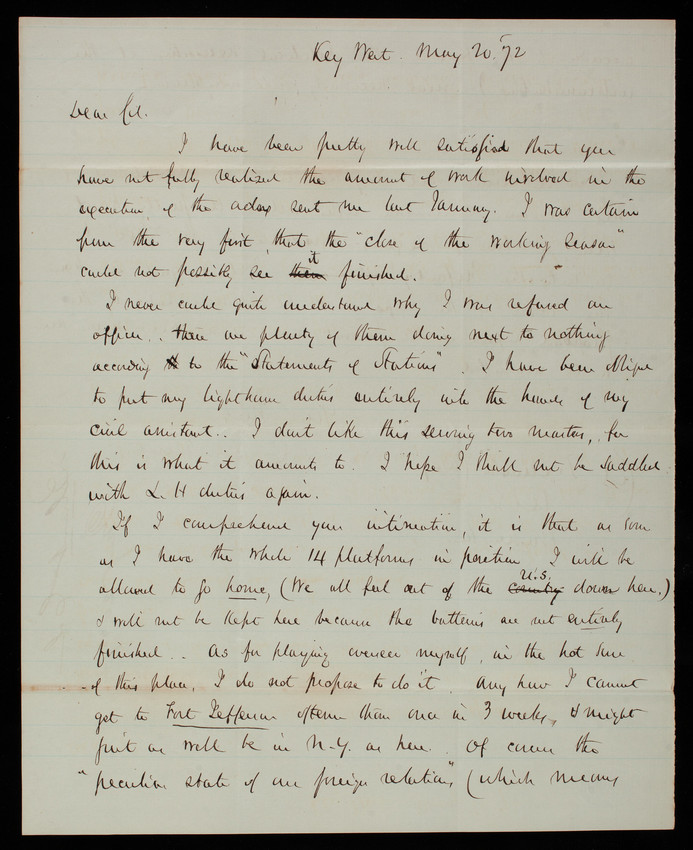 Key West. May 20. '72
Dear Col.
I have been pretty well satisfied that you
have not fully realized the amount of work involved in the
execution of the orders sent me last January. I was certain
from the very first, that the "close of the working season"
could not possibly see them it finished.
I never could quite understand why I was refused an
officer.. there are plenty of them doing next to nothing
according to the "Statements of Stations". I have been obliged
to put my lighthouse duties entirely into the hands of my
civil assistant.. I don't like this serving two masters, for
this is what it amounts to. I hope I shall not be saddled
with L. H duties again.
If I comprehend your intimation, it is that as soon
as I have the whole 14 platforms in position, I will be
allowed to go home, (We all feel out of the country U.S. down here,)
& will not be kept here because the batteries are not entirely
finished.. As for playing overseer myself, in the hot sun
of this place, I do not propose to do it. Any how I cannot
get to Fort Jefferson oftener than once in 3 weeks, & might
just as well be in N.Y. as here. Of course the
"peculiar state of our foreign relations" (which means